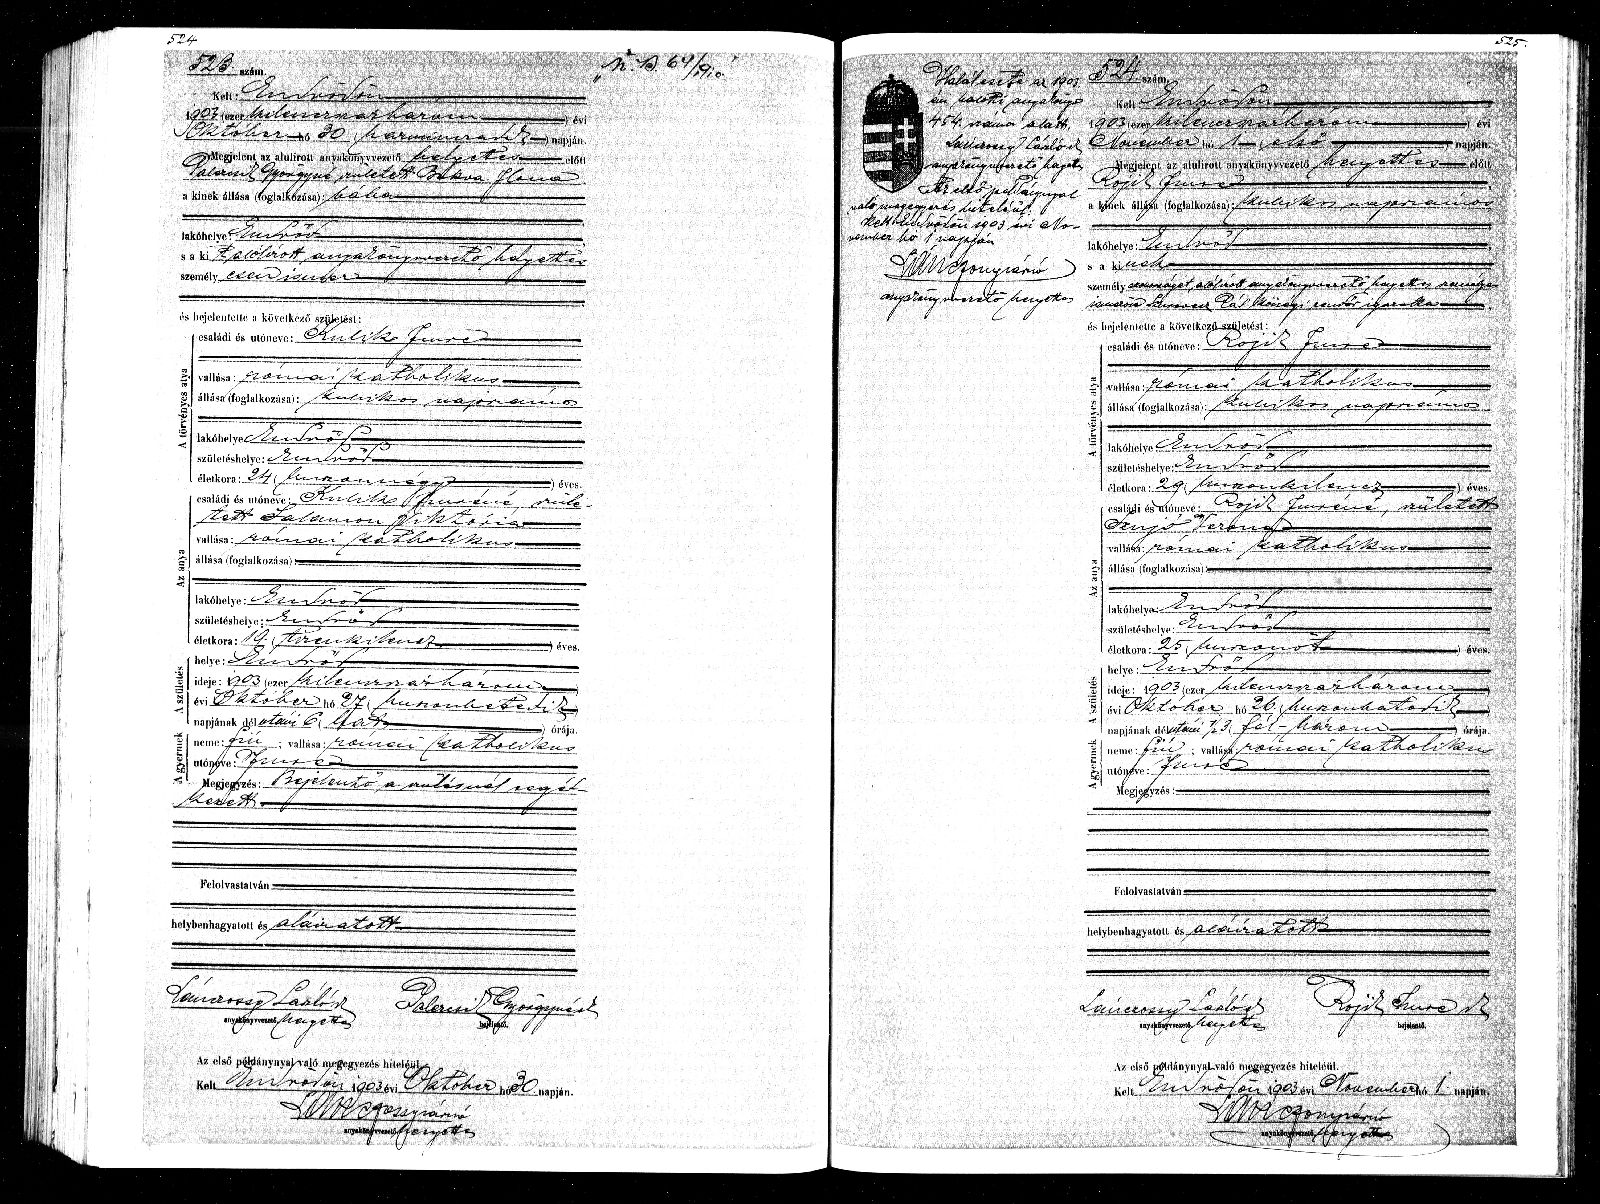 524
523 szám.
Kelt: Endrődön
1903 (ezer kilenczszázhárom ) évi
Október hó 30 (harminczadik ) napján.
Megjelent az alulirott anyakönyvvezető helyettes előtt
Györgyné született Ilona
a kinek állása (foglalkozása): bába
lakóhelye: Endrőd
s a ki t alólirott anyakönyvvezető helyettes
személyesen ismer
és bejelentette a következő születést:
A törvényes atya
családi és utóneve: Kulik Imre
vallása: római katholikus
állása (foglalkozása): kulikos napszámos
lakóhelye Endrőd
születéshelye: Endrőd
életkora: 24 (huszonnégy ) éves.
Az anya
családi és utóneve: Kulik Imréné, szüle-
tett Salamon Viktória
vallása: római katholikus
állása (foglalkozása):
lakóhelye: Endrőd
születéshelye: Endrőd
életkora: 19 (tizenkilencz ) éves.
A születés
helye: Endrőd
ideje: 1903 (ezer kilenczszázhárom )
évi Október hó 27 (huszonhetedik )
napjának délutáni 6 (hat ) órája.
A gyermek
neme: fiú ; vallása: római katholikus
utóneve: Imre
Megjegyzés: Bejelentő a szülésnél segéd-
kezett
Felolvastatván
helybenhagyatott és aláiratott
Lánczossy László sk
anyakönyvvezető helyettes
Györgyné sk
bejelentő.
Az első példánynyal való megegyezés hiteléül.
Kelt Endrődön 1903 évi Október hó 30 napján.
anyakönyvvezető helyettes
525
Halálesete az 1903
454. szám alatt.
Lánczossy László
anyakönyvvezető helyettes
Az első példánynyal
való megegyezés hiteléül
Kelt Endrődön 1903 évi No-
vember hó 1 napján
anyakönyvvezető helyettes
524 szám.
Kelt Endrődön
1903 (ezer kilenczszázhárom ) évi
November hó 1 (első ) napján.
Megjelent az alulirott anyakönyvvezető helyettes előtt
Rojik Imre
a kinek állása (foglalkozása): kulikos napszámos
lakóhelye: Endrőd
s a kinek
személyazonosságát, alólirott anyakönyvvezető helyettes személyesen
ismerős Pál községi rendőr igazolta
és bejelentette a következő születést:
A törvényes atya
családi és utóneve: Rojik Imre
vallása: római katholikus
állása (foglalkozása): kulikos napszámos
lakóhelye Endrőd
születéshelye: Endrőd
életkora: 29 (huszonkilencz ) éves.
Az anya
családi és utóneve: Rojik Imréné, született
Szujó Verona
vallása: római katholikus
állása (foglalkozása):
lakóhelye: Endrőd
születéshelye: Endrőd
életkora: 25 (huszonöt ) éves.
A születés
helye: Endrőd
ideje: 1903 (ezer kilenczszázhárom )
évi Október hó 26 (huszonhatodik )
napjának délutáni 1/2 3 (fél-három ) órája.
A gyermek
neme: fiú ; vallása: római katholikus
utóneve: Imre
Megjegyzés:
Felolvastatván
helybenhagyatott és aláiratott
Lánczossy László sk
anyakönyvvezető helyettes
Rojik Imre sk
bejelentő.
Az első példánynyal való megegyezés hiteléül.
Kelt Endrődön 1903 évi November hó 1 napján.
anyakönyvvezető helyettes